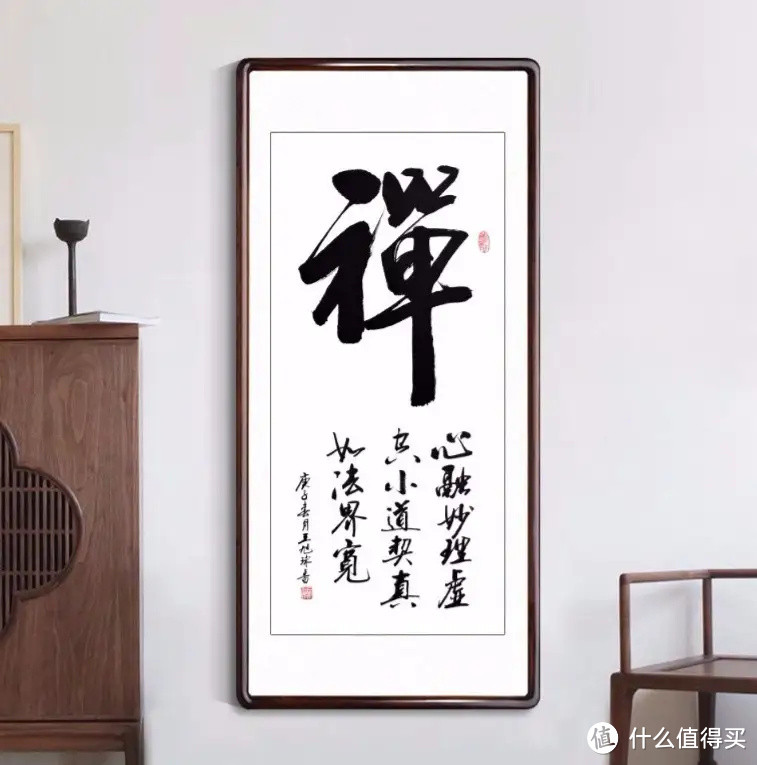 禪
心融妙理虚
空小道契真
如法界寬
庚子春月王旭球書
值 什么值得买